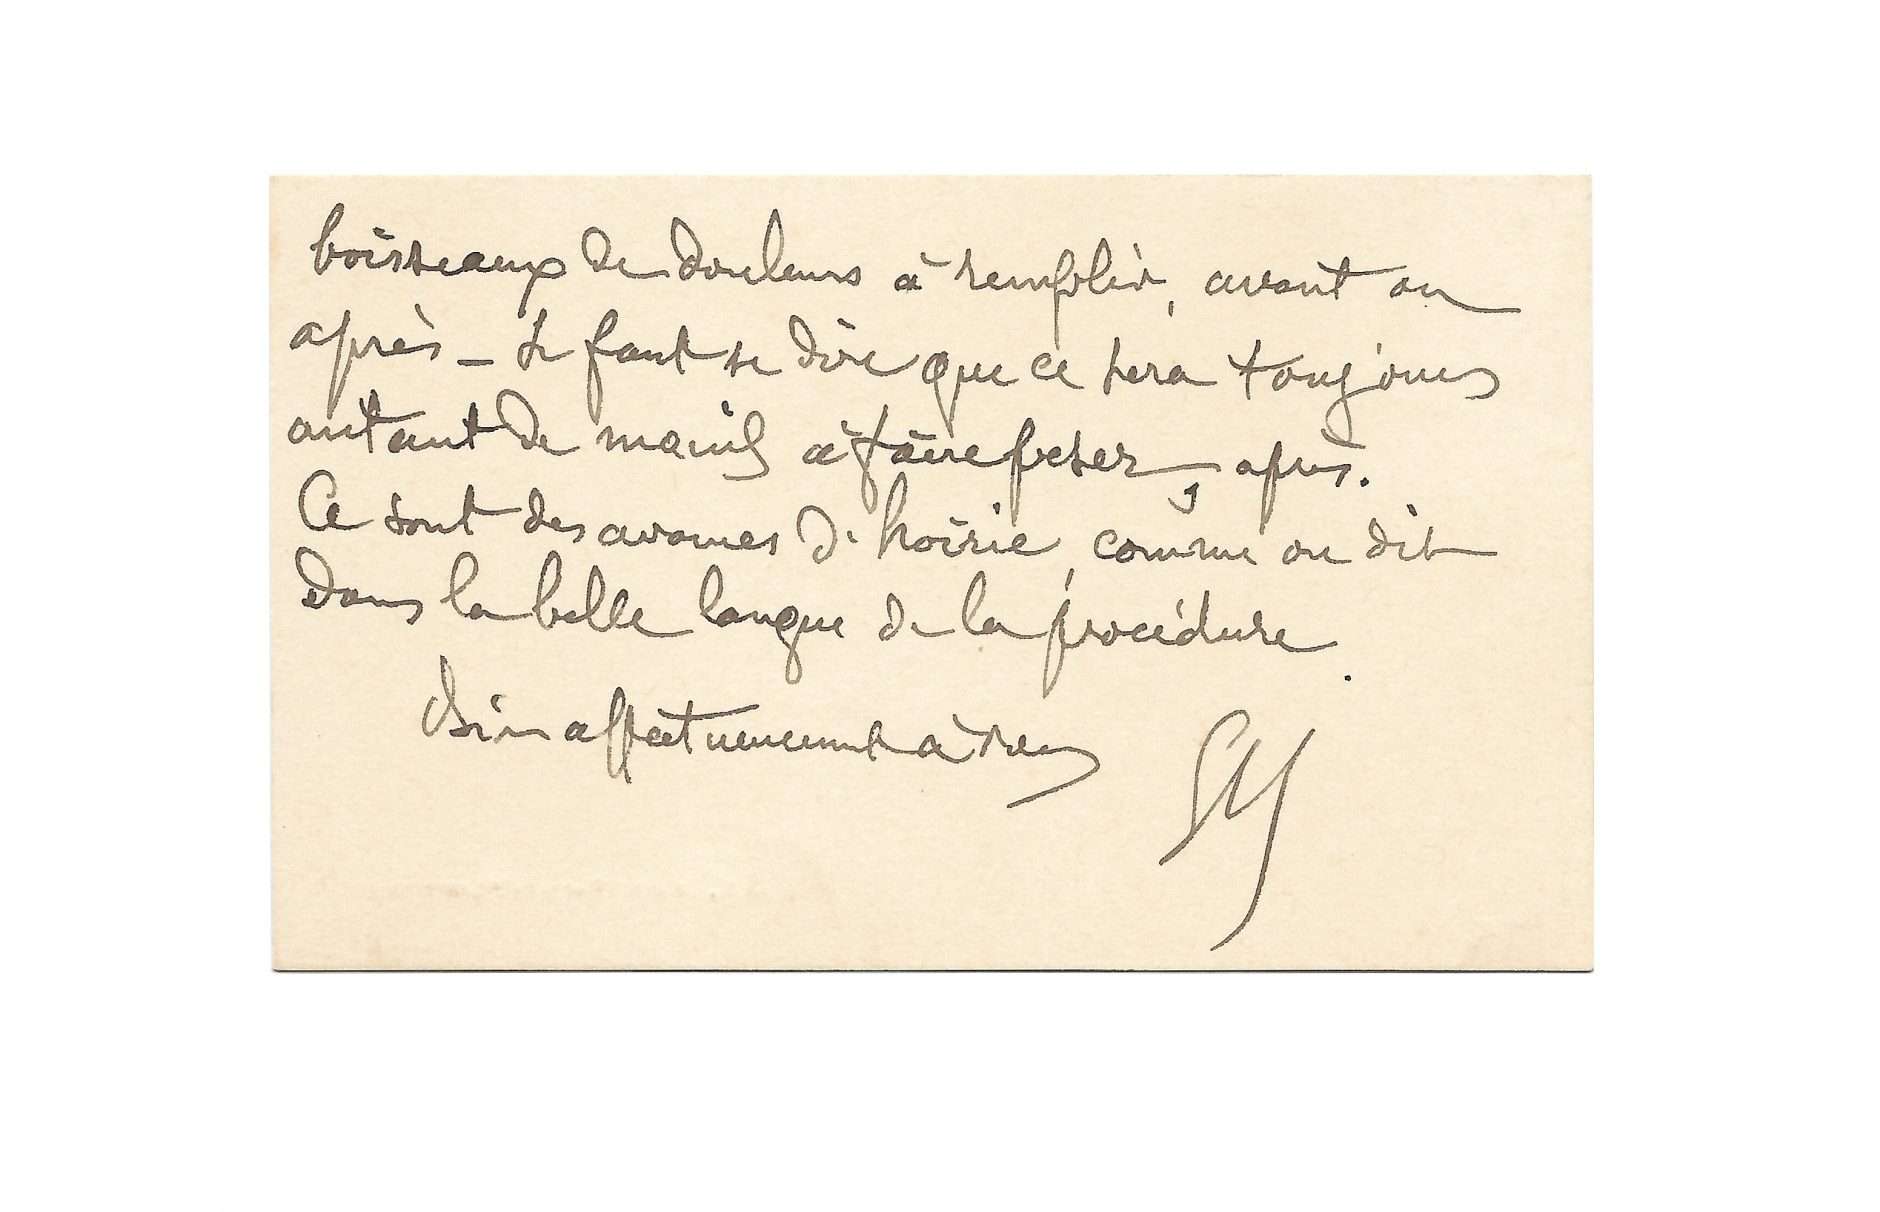 boisseaux de douleurs à remplir, avant ou
après – Il faut se dire que ce sera toujours
autant de moins à faire peser, après.
Ce sont des avances d'hoirie, comme on dit
dans la belle langue de la procédure.
Bien affectueusement à vous